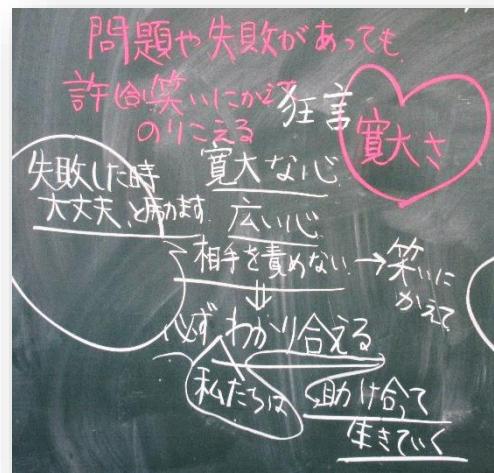 問題や失敗があっても
許し合い笑いにかえて
のりこえる
狂言
寛大さ
失敗した時
大丈夫、と励ます。
寛大な心
広い心
相手を責めない→笑いに
かえて
⇓
必ずわかり合える
私たちは
助け合って
生きていく